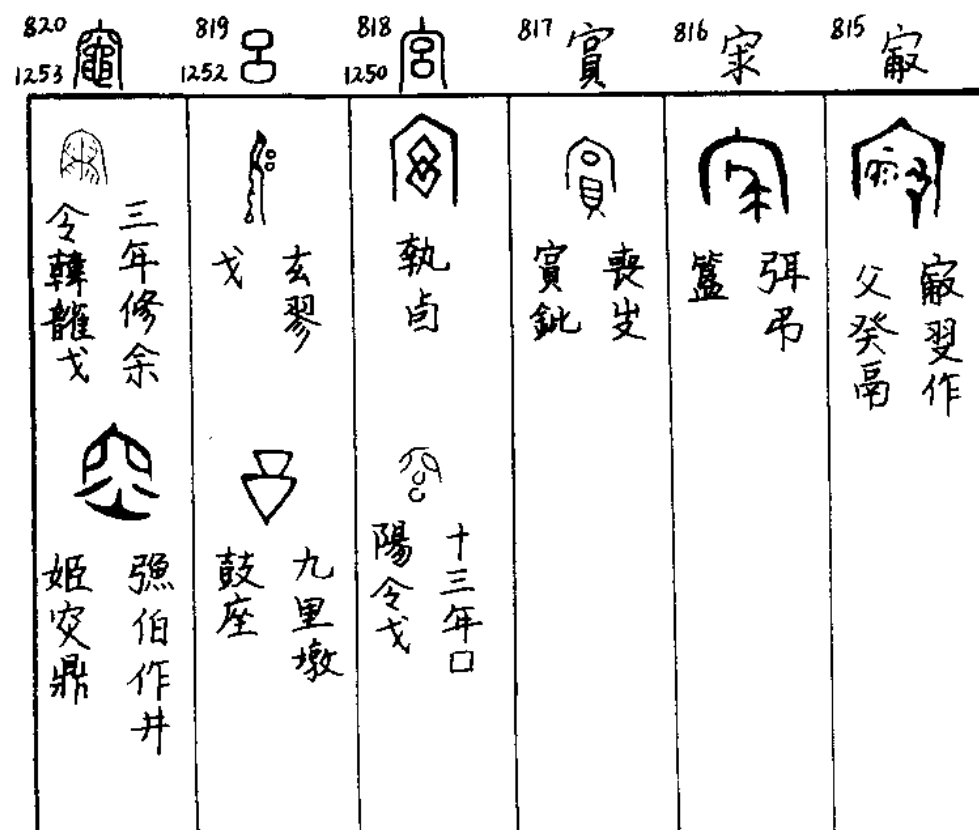 815
作
父癸鬲
816
弭弔
簠
817
喪
鈚
818
1250
宮
執卣
十三年□
陽令戈
819
1252
呂
玄翏
戈
九里墩
鼓座
820
1253
竈
三年修余
令韓戈
伯作井
姬鼎